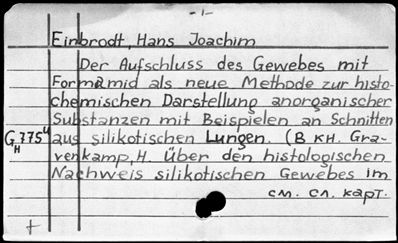 -1-
Einbrodt, Hans Joachim
Der Aufschluss des Gewebes mit
Formamid als neue Methode zur histo-
chemischen Darstellung anorganischer
Substanzen mit Beispielen an Schnitten
G 775 4 aus silikotischen Lungen. (В кн. Gra-
H venkamp, H. Über den histologischen
Nachweis silikotischen Gewebes im
см. сл. карт.
+